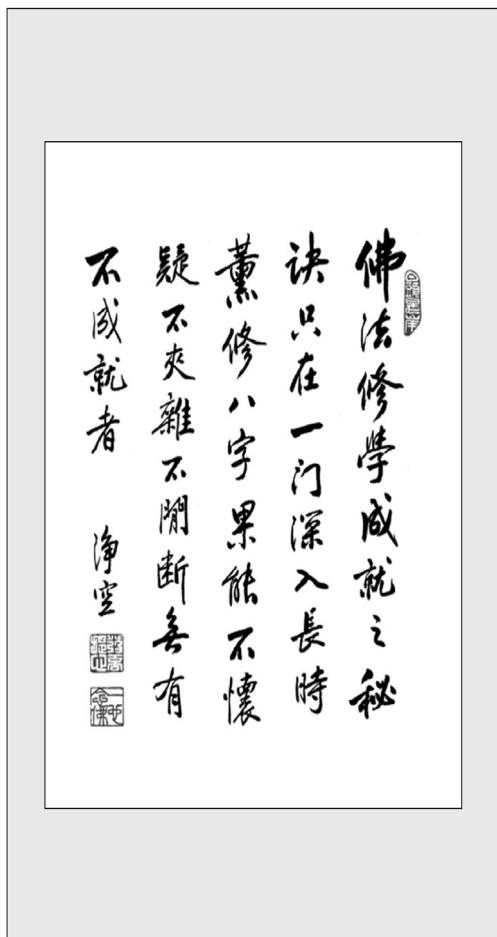 佛法修學成就之秘
訣只在一门深入長時
薰修八字果能不懷
疑不夾雜不間断無有
不成就者
淨空
一心念佛